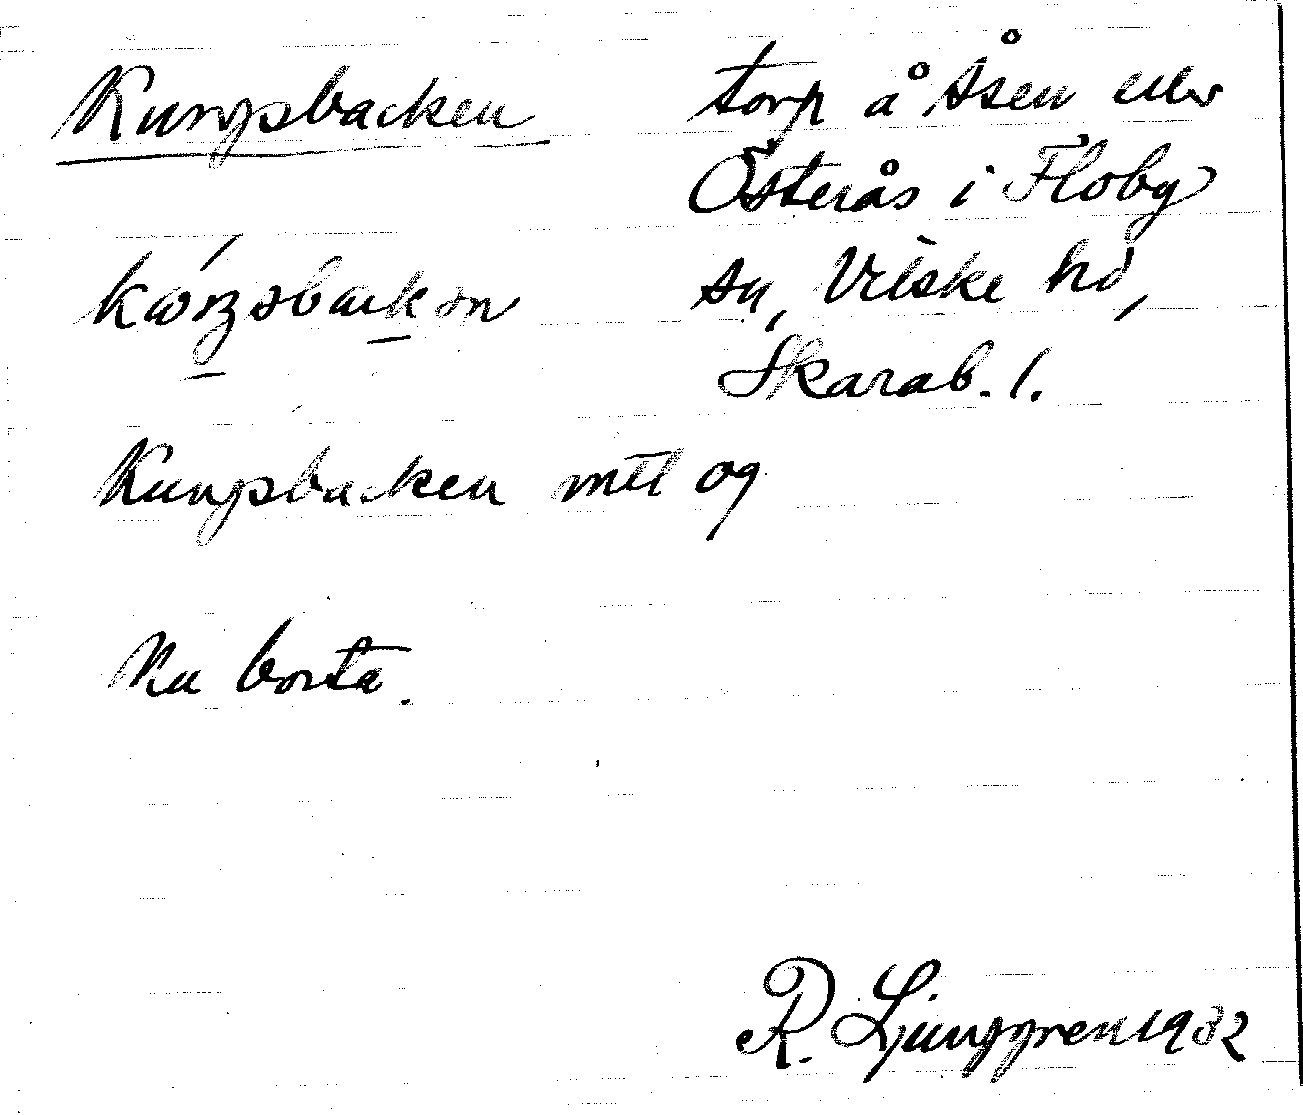 Kungsbacken
torp å Åsen eller
Österås i Floby
sn, Vilske hd,
Skarab. l.
Kungsbacken mtl og
Nu borta.
R. Ljunggren 1932